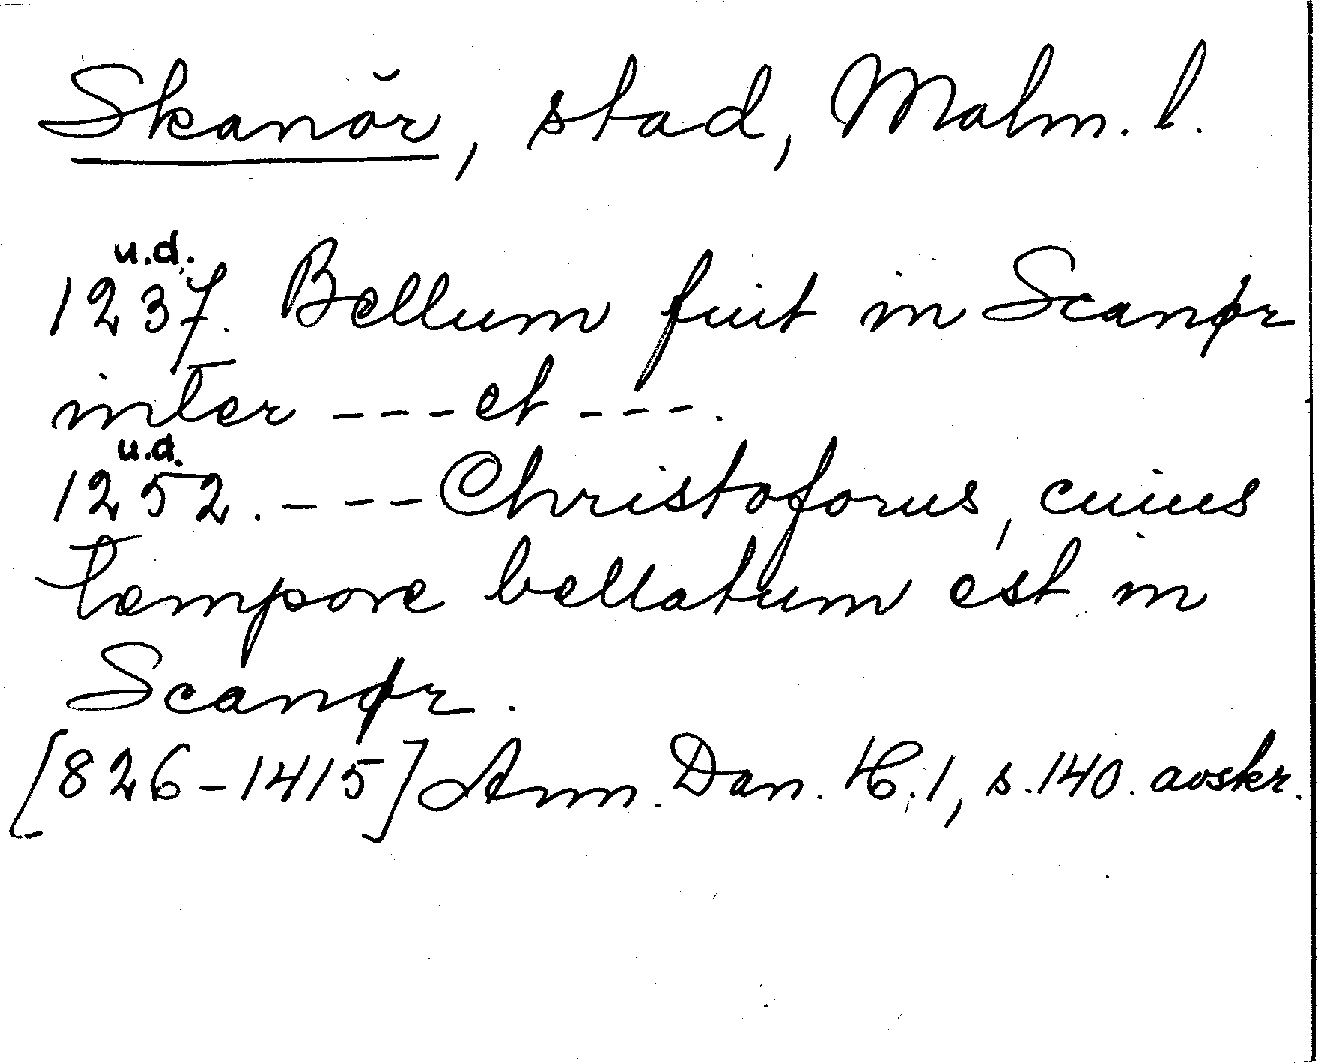 Skanör, stad, Malm. l.
u.d.
1237. Bellum fuit in Scanør
inter --- et ---.
u.d.
1252. --- Christoforus, cuius
tempore bellatum est in
Scanør.
[826-1415] Ann. Dan. H. 1, s. 140. avskr.